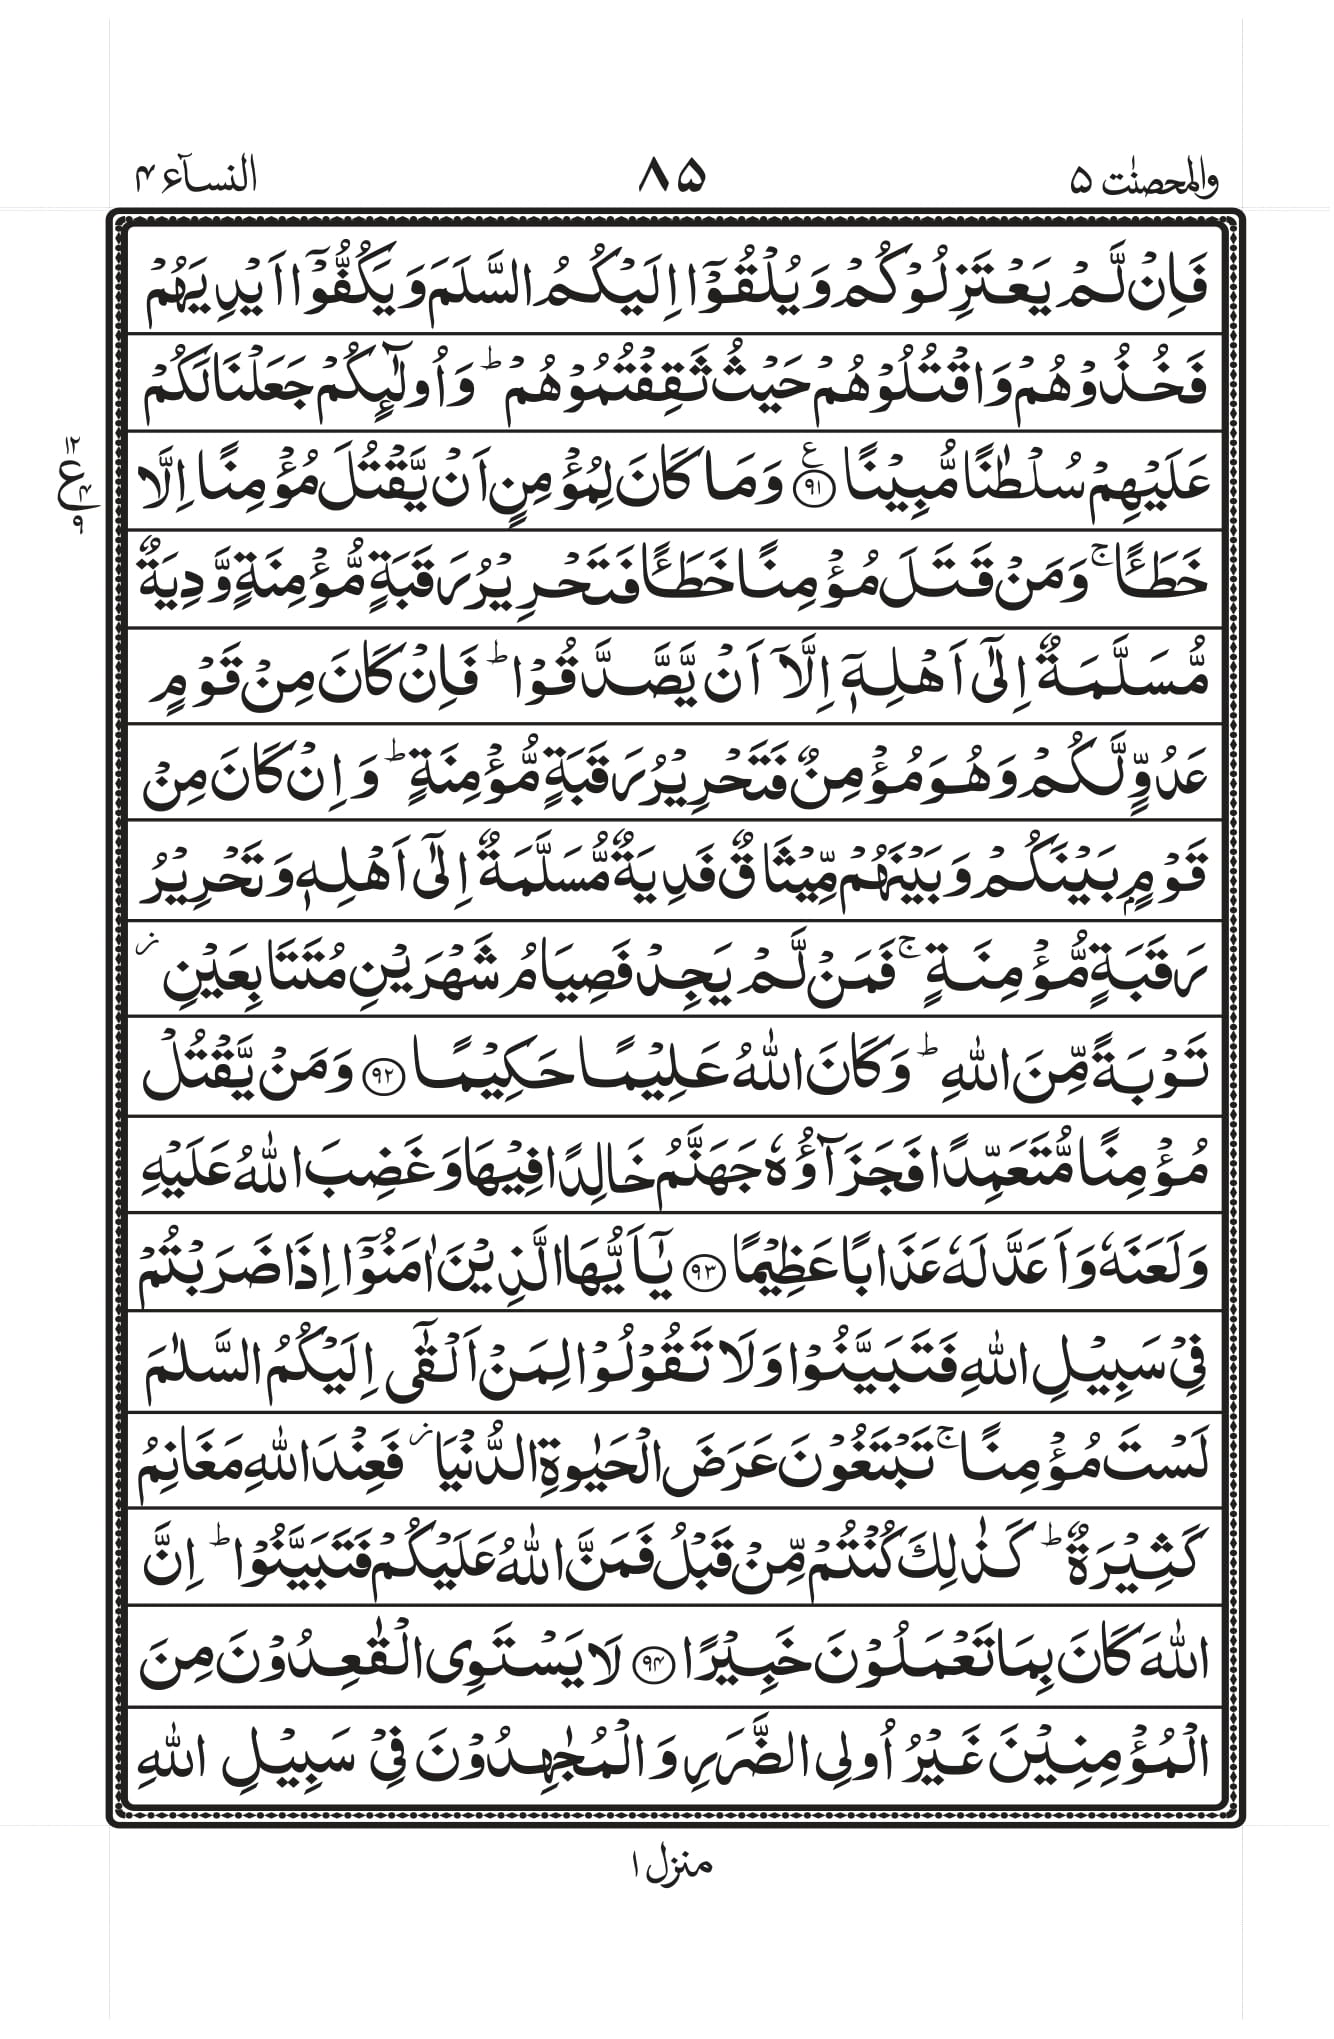 والمحصنٰت ۵
۸۵
النسآء ۴
فَاِنۡ لَّمۡ يَعۡتَزِلُوۡكُمۡ وَيُلۡقُوۡۤا اِلَيۡكُمُ السَّلَمَ وَيَكُفُّوۡۤا اَيۡدِيَهُمۡ
فَخُذُوۡهُمۡ وَاقۡتُلُوۡهُمۡ حَيۡثُ ثَقِفۡتُمُوۡهُمۡ ؕ وَاُولٰٓئِكُمۡ جَعَلۡنَا لَكُمۡ
عَلَيۡهِمۡ سُلۡطٰنًا مُّبِيۡنًا ﴿۹۱﴾ ع وَمَا كَانَ لِمُؤۡمِنٍ اَنۡ يَّقۡتُلَ مُؤۡمِنًا اِلَّا
۱۲
ع
۴
۹
خَطَـًٔا ۚ وَمَنۡ قَتَلَ مُؤۡمِنًا خَطَـًٔا فَتَحۡرِيۡرُ رَقَبَةٍ مُّؤۡمِنَةٍ وَّدِيَةٌ
مُّسَلَّمَةٌ اِلٰٓى اَهۡلِهٖۤ اِلَّاۤ اَنۡ يَّصَّدَّقُوۡا ؕ فَاِنۡ كَانَ مِنۡ قَوۡمٍ
عَدُوٍّ لَّكُمۡ وَهُوَ مُؤۡمِنٌ فَتَحۡرِيۡرُ رَقَبَةٍ مُّؤۡمِنَةٍ ؕ وَاِنۡ كَانَ مِنۡ
قَوۡمٍۭ بَيۡنَكُمۡ وَبَيۡنَهُمۡ مِّيۡثَاقٌ فَدِيَةٌ مُّسَلَّمَةٌ اِلٰٓى اَهۡلِهٖ وَتَحۡرِيۡرُ
رَقَبَةٍ مُّؤۡمِنَةٍ ۚ فَمَنۡ لَّمۡ يَجِدۡ فَصِيَامُ شَهۡرَيۡنِ مُتَتَابِعَيۡنِ ز
تَوۡبَةً مِّنَ اللّٰهِ ؕ وَكَانَ اللّٰهُ عَلِيۡمًا حَكِيۡمًا ﴿۹۲﴾ وَمَنۡ يَّقۡتُلۡ
مُؤۡمِنًا مُّتَعَمِّدًا فَجَزَآؤُهٗ جَهَنَّمُ خَالِدًا فِيۡهَا وَغَضِبَ اللّٰهُ عَلَيۡهِ
وَلَعَنَهٗ وَاَعَدَّ لَهٗ عَذَابًا عَظِيۡمًا ﴿۹۳﴾ يٰۤاَيُّهَا الَّذِيۡنَ اٰمَنُوۡۤا اِذَا ضَرَبۡتُمۡ
فِىۡ سَبِيۡلِ اللّٰهِ فَتَبَيَّنُوۡا وَلَا تَقُوۡلُوۡا لِمَنۡ اَلۡقٰٓى اِلَيۡكُمُ السَّلٰمَ
لَسۡتَ مُؤۡمِنًا ۚ تَبۡتَغُوۡنَ عَرَضَ الۡحَيٰوةِ الدُّنۡيَا ز فَعِنۡدَ اللّٰهِ مَغَانِمُ
كَثِيۡرَةٌ ؕ كَذٰلِكَ كُنۡتُمۡ مِّنۡ قَبۡلُ فَمَنَّ اللّٰهُ عَلَيۡكُمۡ فَتَبَيَّنُوۡا ؕ اِنَّ
اللّٰهَ كَانَ بِمَا تَعۡمَلُوۡنَ خَبِيۡرًا ﴿۹۴﴾ لَا يَسۡتَوِى الۡقٰعِدُوۡنَ مِنَ
الۡمُؤۡمِنِيۡنَ غَيۡرُ اُولِى الضَّرَرِ وَالۡمُجٰهِدُوۡنَ فِىۡ سَبِيۡلِ اللّٰهِ
منزل ۱